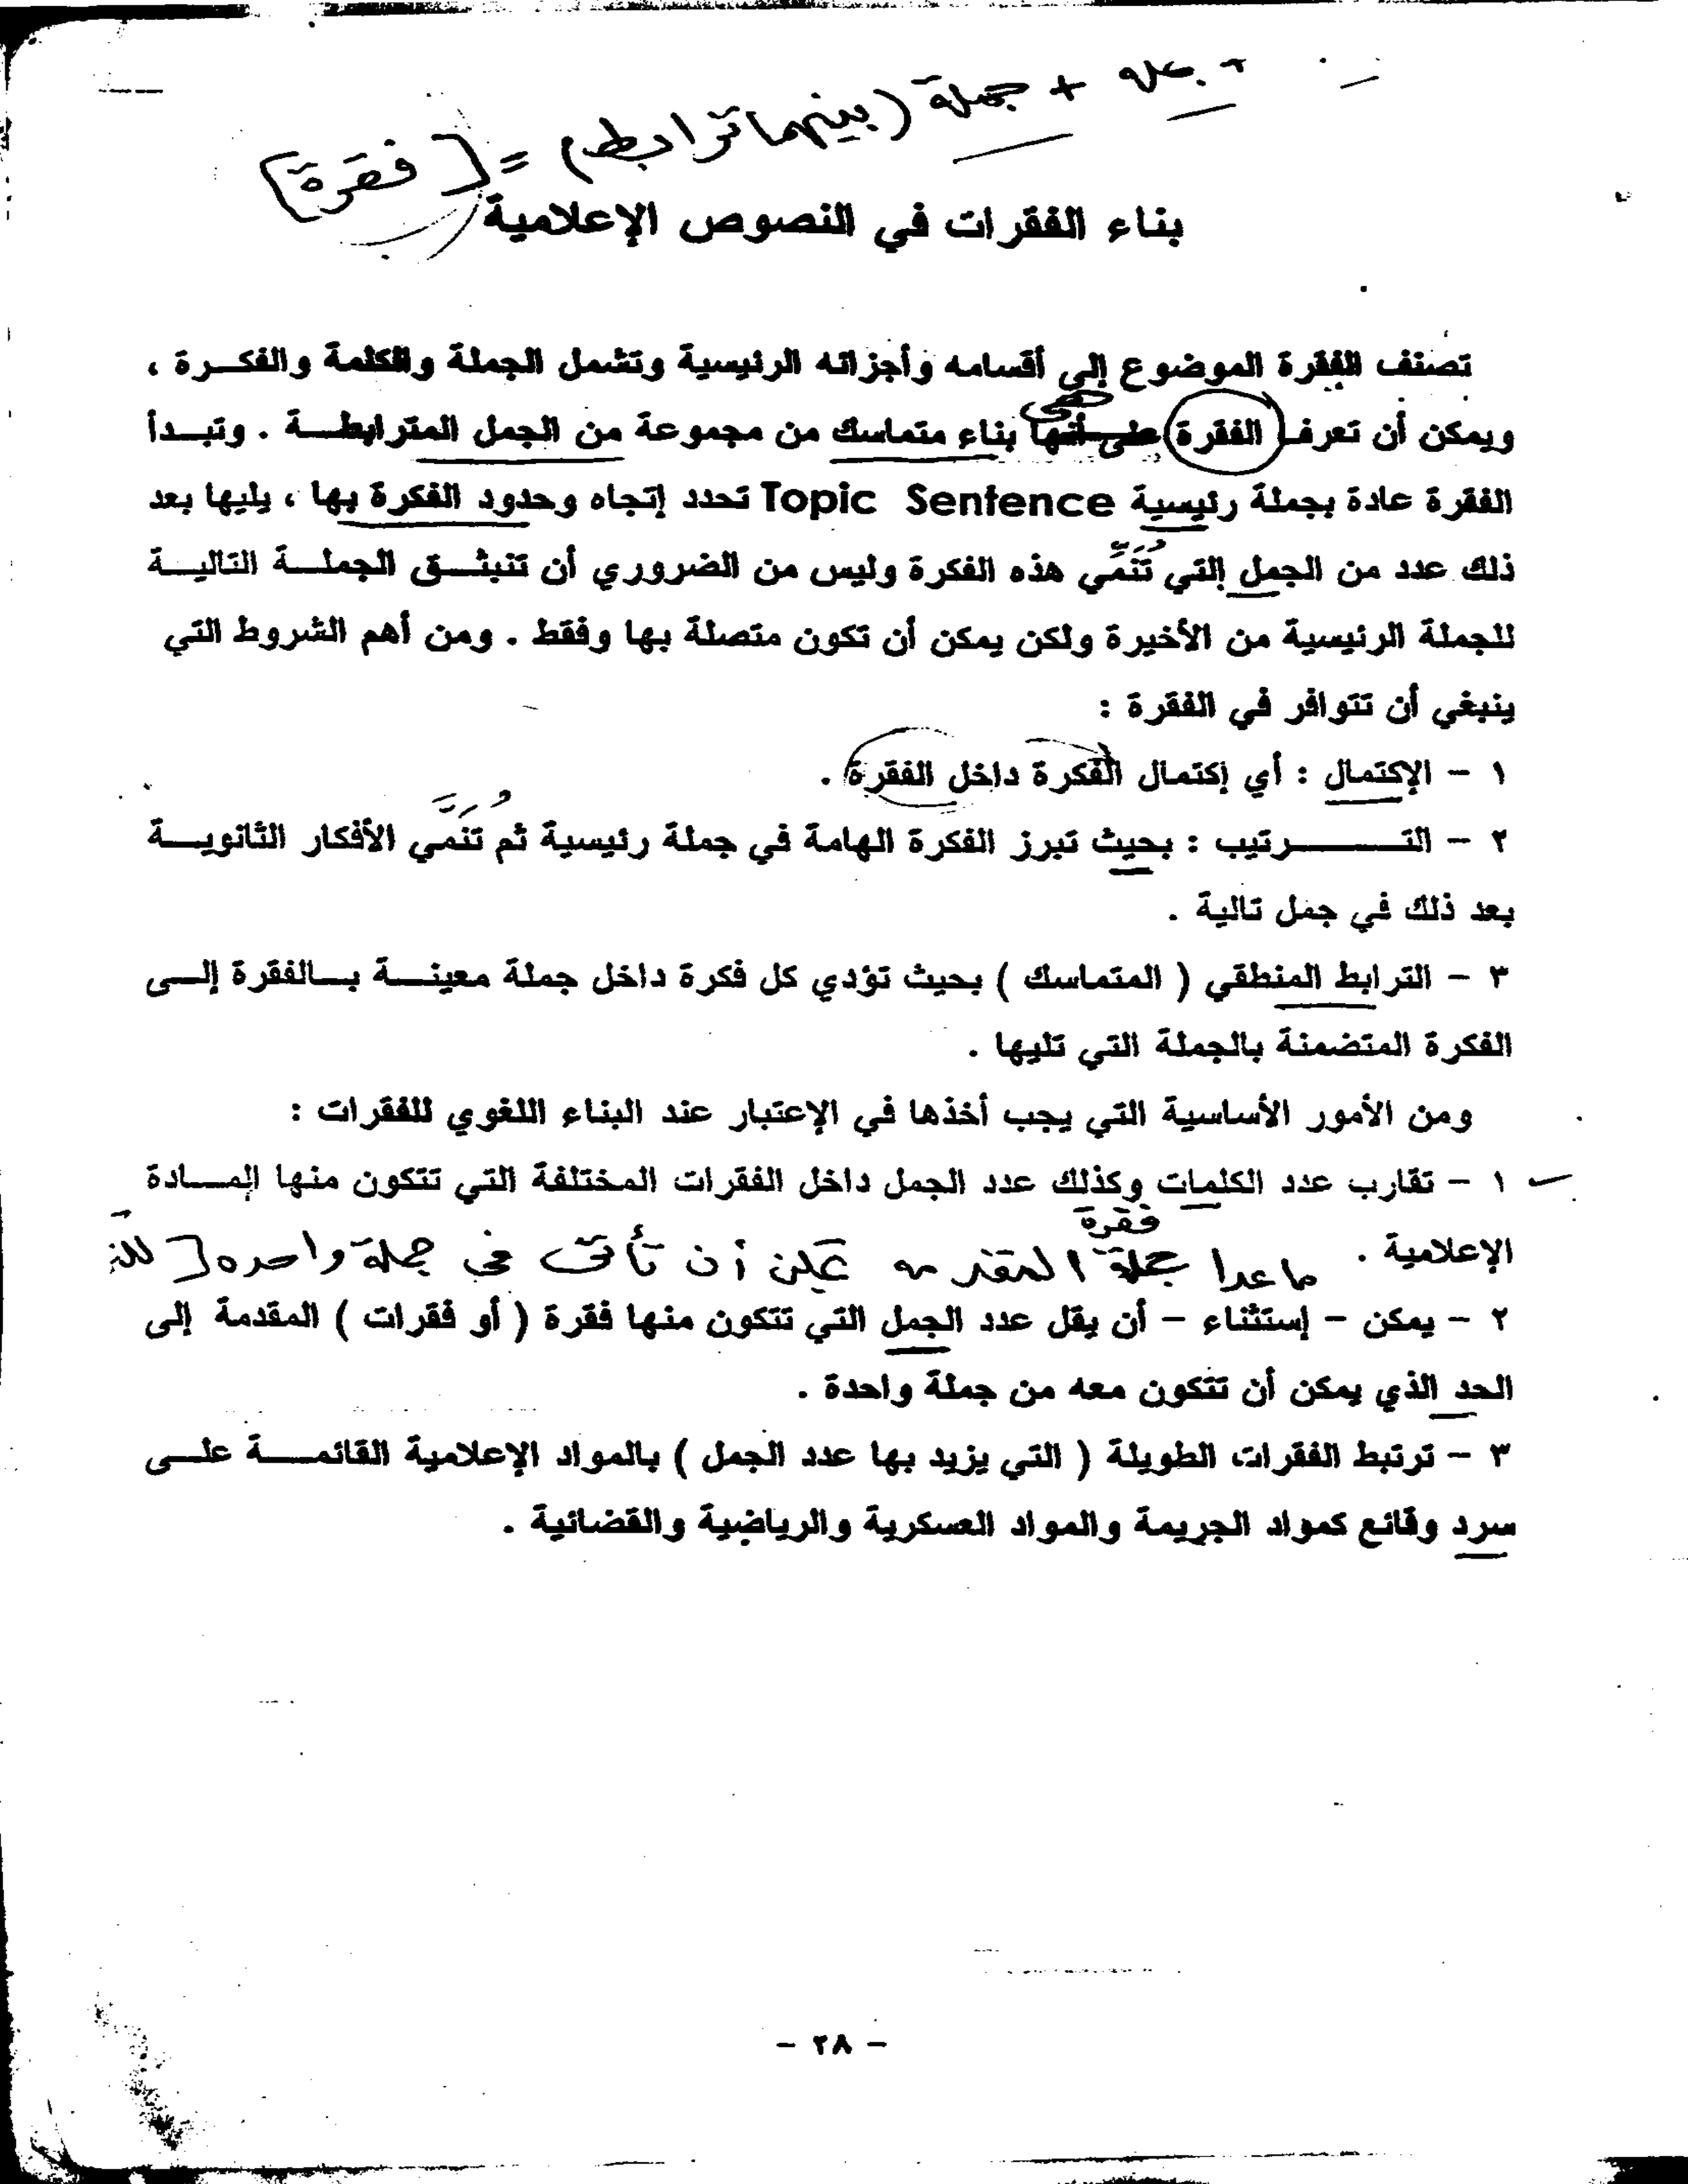 جملة + جملة (بينهما ترابط) = [فقرة]
بناء الفقرات في النصوص الإعلامية
تصنف الفقرة الموضوع إلى أقسامه وأجزائه الرئيسية وتشمل الجملة والكلمة والفكرة ،
ويمكن أن تعرف الفقرة على أنها بناء متماسك من مجموعة من الجمل المترابطة . وتبدأ
هي
الفقرة عادة بجملة رئيسية Topic Sentence تحدد إتجاه وحدود الفكرة بها ، يليها بعد
ذلك عدد من الجمل التي تُنَمِّي هذه الفكرة وليس من الضروري أن تنبثق الجملة التالية
للجملة الرئيسية من الأخيرة ولكن يمكن أن تكون متصلة بها وفقط . ومن أهم الشروط التي
ينبغي أن تتوافر في الفقرة :
١ - الإكتمال : أي إكتمال الفكرة داخل الفقرة .
٢ - الترتيب : بحيث تبرز الفكرة الهامة في جملة رئيسية ثم تُنَمِّي الأفكار الثانوية
بعد ذلك في جمل تالية .
٣ - الترابط المنطقي ( المتماسك ) بحيث تؤدي كل فكرة داخل جملة معينة بالفقرة إلى
الفكرة المتضمنة بالجملة التي تليها .
ومن الأمور الأساسية التي يجب أخذها في الإعتبار عند البناء اللغوي للفقرات :
١ - تقارب عدد الكلمات وكذلك عدد الجمل داخل الفقرات المختلفة التي تتكون منها المادة
فقرة
الإعلامية . ما عدا جملة المقدمه يمكن أن تأتى فى جملة واحده
٢ - يمكن - إستثناء - أن يقل عدد الجمل التي تتكون منها فقرة ( أو فقرات ) المقدمة إلى
الحد الذي يمكن أن تتكون معه من جملة واحدة .
٣ - ترتبط الفقرات الطويلة ( التي يزيد بها عدد الجمل ) بالمواد الإعلامية القائمة على
سرد وقائع كمواد الجريمة والمواد العسكرية والرياضية والقضائية .
- ٢٨ -